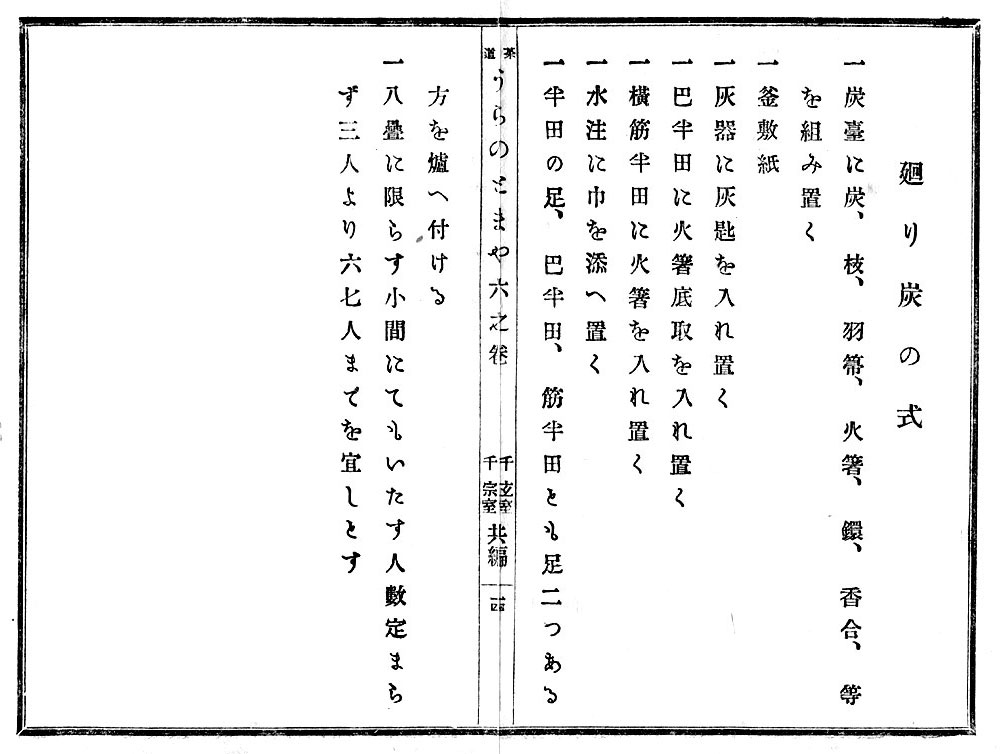 廻り炭の式
一炭臺に炭、枝、羽箒、火箸、鐶、香合、等
を組み置く
一釜敷紙
一灰器に灰匙を入れ置く
一巴半田に火箸底取を入れ置く
一横筋半田に火箸を入れ置く
一水注に巾を添へ置く
一半田の足、巴半田、筋半田とも足二つある
茶道 うらのとまや六之卷 千玄室 千宗室 共編 一四
方を爐へ付ける
一八疊に限らす小間にてもいたす人數定まら
ず三人より六七人まてを宜しとす